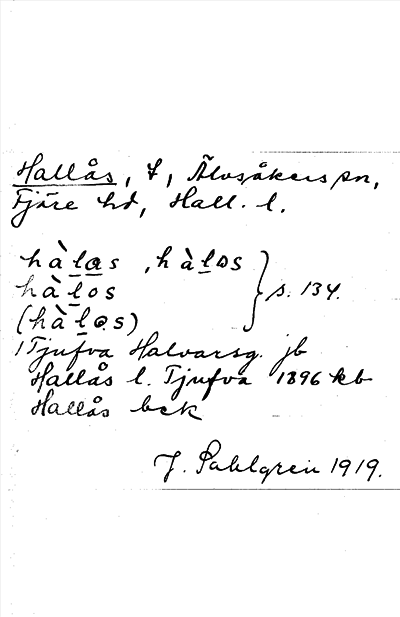 Hallås, t, Älvsåkers sn,
Fjäre hd, Hall. l.
hàlas, hàlos
hàlos } s. 134.
(hàlos)
1 Tjufva Halvarsg. jb
Hallås l. Tjufva 1896 kb
Hallås bck
J. Sahlgren 1919.